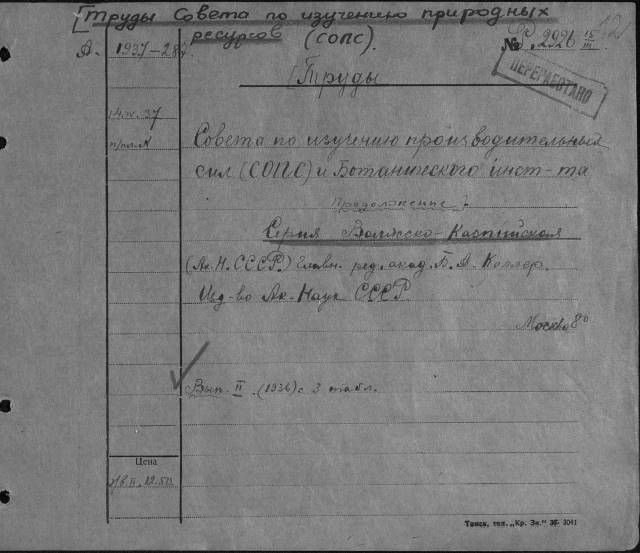 [Труды Совета по изучению природных
ресурсов (СОПС).
Д. 1937-287
№ 2926 15/III
ПЕРЕРАБОТАНО
[Труды
37
Совета по изучению производительных
сил (СОПС) и Ботанического инст-та
продолжение
Серия Волжско-Каспийская
(Ак. Н. СССР.) Главн. ред. акад. Б. А. Келлер.
Изд-во Ак. Наук СССР.
Москва 8°
Вып. II. (1936) с 3 табл.
Цена
Томск, тел. „Кр. Зн." 37 2041